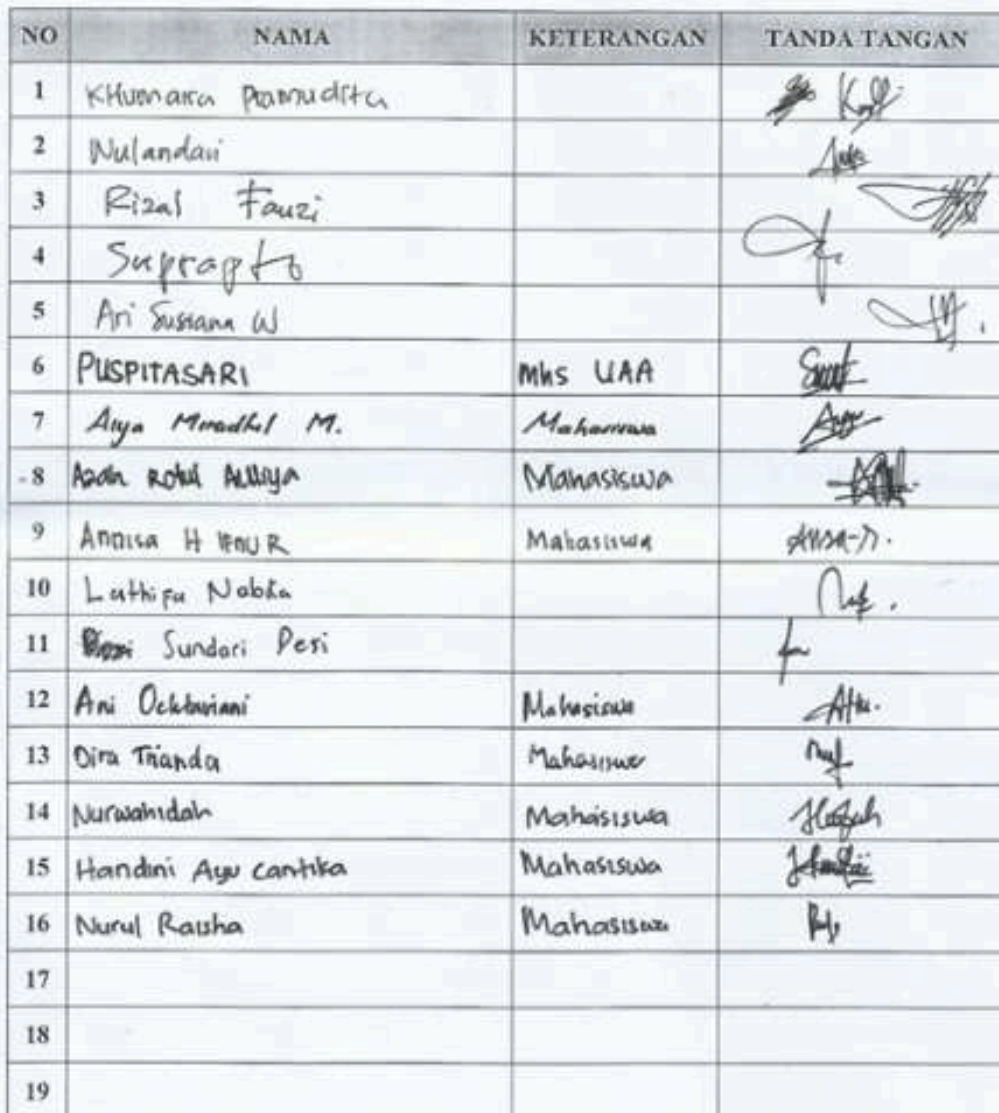 NO NAMA KETERANGAN TANDA TANGAN
1 KHumaira Pramudita
2 Wulandari
3 Rizal Fauzi
4 Suprapto
5 Ari Susiana W
6 PUSPITASARI Mhs UAA
7 Arya M. Mahasiswa
8 Mahasiswa
9 Annisa H R Mahasiswa
10 Luthifa Nabila
11 Sundari Desi
12 Ani Ocktaviani Mahasiswa
13 Dira Trianda Mahasiswa
14 Nurwahidah Mahasiswa
15 Handini Ayu Cantika Mahasiswa
16 Nurul Raisha Mahasiswa
17
18
19